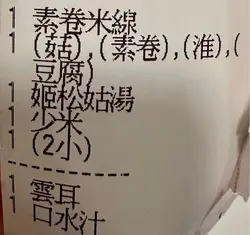 1 素卷米線
1 (菇),(素卷),(淮),(
豆腐)
1 姬松菇湯
1 少米
1 (2小)
1 雲耳
1 口水汁